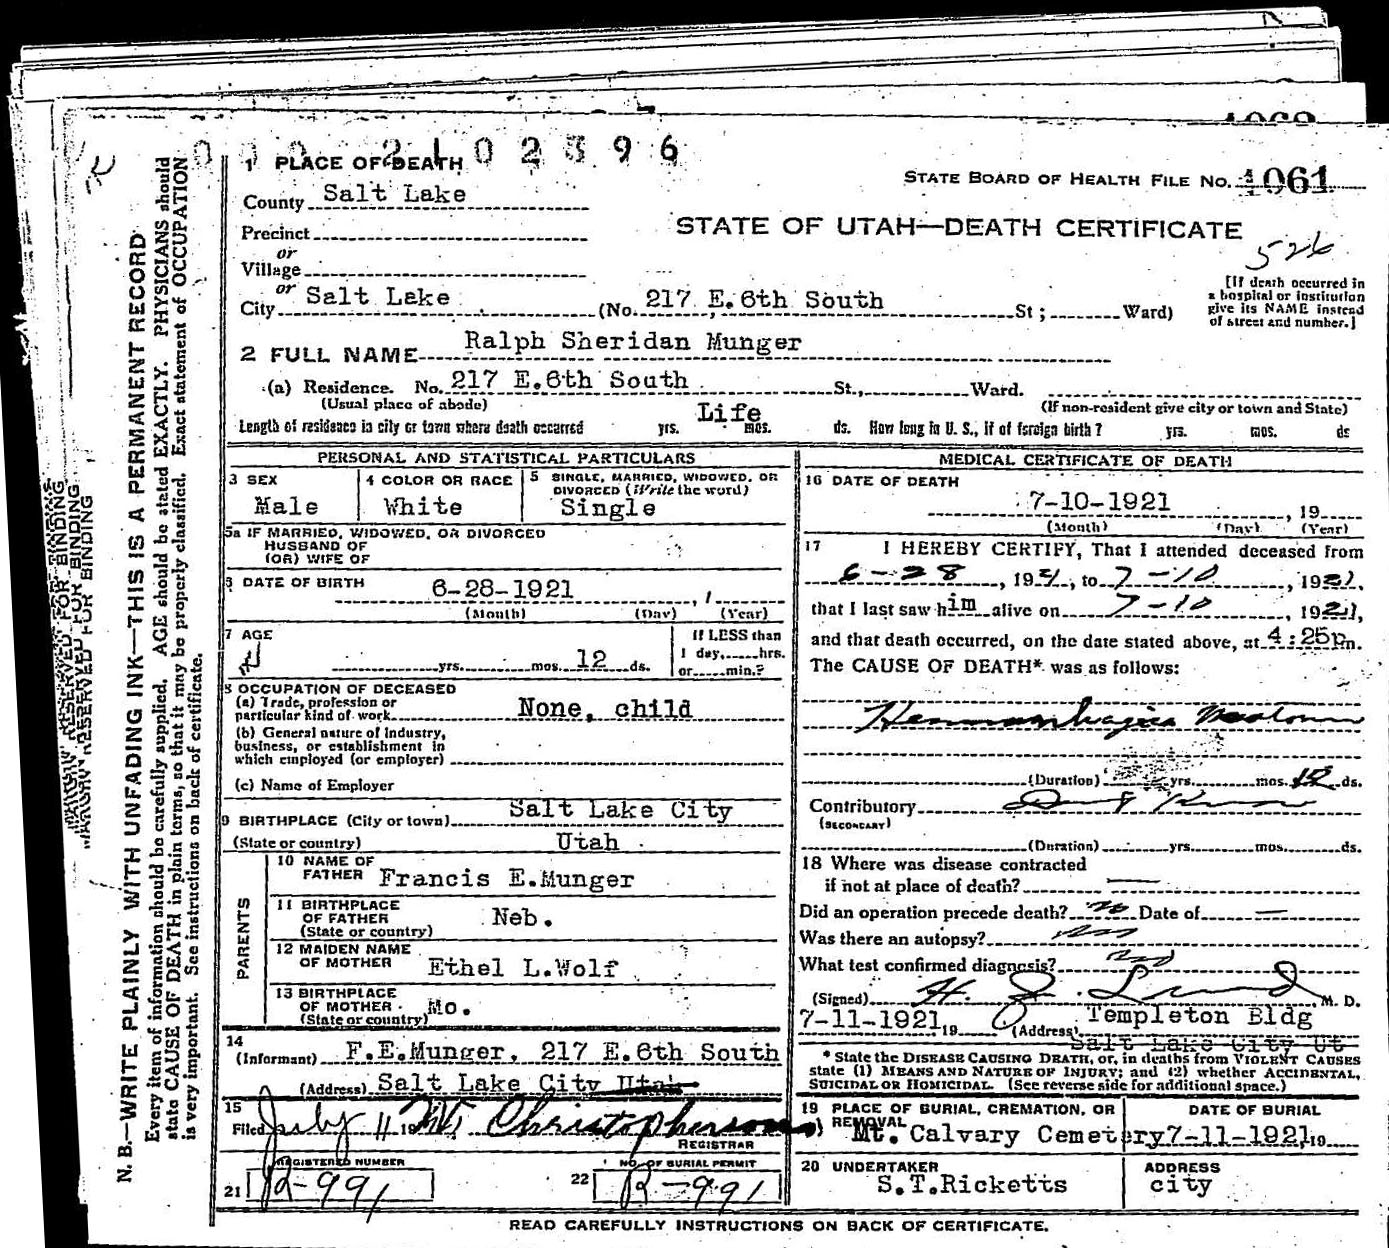 0 0 0 2 1 0 2 3 9 6
1 PLACE OF DEATH
STATE BOARD OF HEALTH FILE NO. 1061
County Salt Lake
STATE OF UTAH—DEATH CERTIFICATE
Precinct
or
Village
526
or
City Salt Lake (No. 217 E.6th South St; Ward)
[If death occurred in
a hospital or institution
give its NAME instead
of street and number.]
2 FULL NAME Ralph Sheridan Munger
(a) Residence. No. 217 E.6th South St., Ward.
(Usual place of abode) (If non-resident give city or town and State)
Length of residence in city or town where death occurred yrs. Life mos. ds. How long in U. S., if of foreign birth? yrs. mos. ds
PERSONAL AND STATISTICAL PARTICULARS
3 SEX
Male
4 COLOR OR RACE
White
5 SINGLE, MARRIED, WIDOWED, OR
DIVORCED (Write the word)
Single
5a IF MARRIED, WIDOWED, OR DIVORCED
HUSBAND OF
(OR) WIFE OF
6 DATE OF BIRTH 6-28-1921
(Month) (Day) (Year)
7 AGE
yrs. mos. 12 ds.
If LESS than
1 day,......hrs.
or......min.?
8 OCCUPATION OF DECEASED
(a) Trade, profession or
particular kind of work None, child
(b) General nature of industry,
business, or establishment in
which employed (or employer)
(c) Name of Employer
9 BIRTHPLACE (City or town) Salt Lake City
(State or country) Utah
PARENTS
10 NAME OF
FATHER Francis E.Munger
11 BIRTHPLACE
OF FATHER Neb.
(State or country)
12 MAIDEN NAME
OF MOTHER Ethel L.Wolf
13 BIRTHPLACE
OF MOTHER Mo.
(State or country)
14
(Informant) F.E.Munger, 217 E.6th South
(Address) Salt Lake City Utah
15
Filed July 11 19 Christopherson
REGISTRAR
REGISTERED NUMBER
21 R-991
NO. OF BURIAL PERMIT
22 R-991
MEDICAL CERTIFICATE OF DEATH
16 DATE OF DEATH
7-10-1921, 19
(Month) (Day) (Year)
17 I HEREBY CERTIFY, That I attended deceased from
6-28, 1921, to 7-10, 1921,
that I last saw him alive on 7-10 1921,
and that death occurred, on the date stated above, at 4:25pm.
The CAUSE OF DEATH* was as follows:
(Duration) yrs. mos. 12 ds.
Contributory
(SECONDARY)
(Duration) yrs. mos. ds.
18 Where was disease contracted
if not at place of death? —
Did an operation precede death? no Date of —
Was there an autopsy? no
What test confirmed diagnosis?
(Signed) H. J. M. D.
7-11-1921, 19 (Address) Templeton Bldg
Salt Lake City Ut
* State the DISEASE CAUSING DEATH, or, in deaths from VIOLENT CAUSES
state (1) MEANS AND NATURE OF INJURY; and (2) whether ACCIDENTAL,
SUICIDAL OR HOMICIDAL. (See reverse side for additional space.)
19 PLACE OF BURIAL, CREMATION, OR
REMOVAL
Mt. Calvary Cemetery
DATE OF BURIAL
7-11-1921, 19
20 UNDERTAKER
S.T.Ricketts
ADDRESS
city
READ CAREFULLY INSTRUCTIONS ON BACK OF CERTIFICATE.
MARGIN RESERVED FOR BINDING
N. B.—WRITE PLAINLY WITH UNFADING INK—THIS IS A PERMANENT RECORD
Every item of information should be carefully supplied. AGE should be stated EXACTLY. PHYSICIANS should
state CAUSE OF DEATH in plain terms, so that it may be properly classified. Exact statement of OCCUPATION
is very important. See instructions on back of certificate.